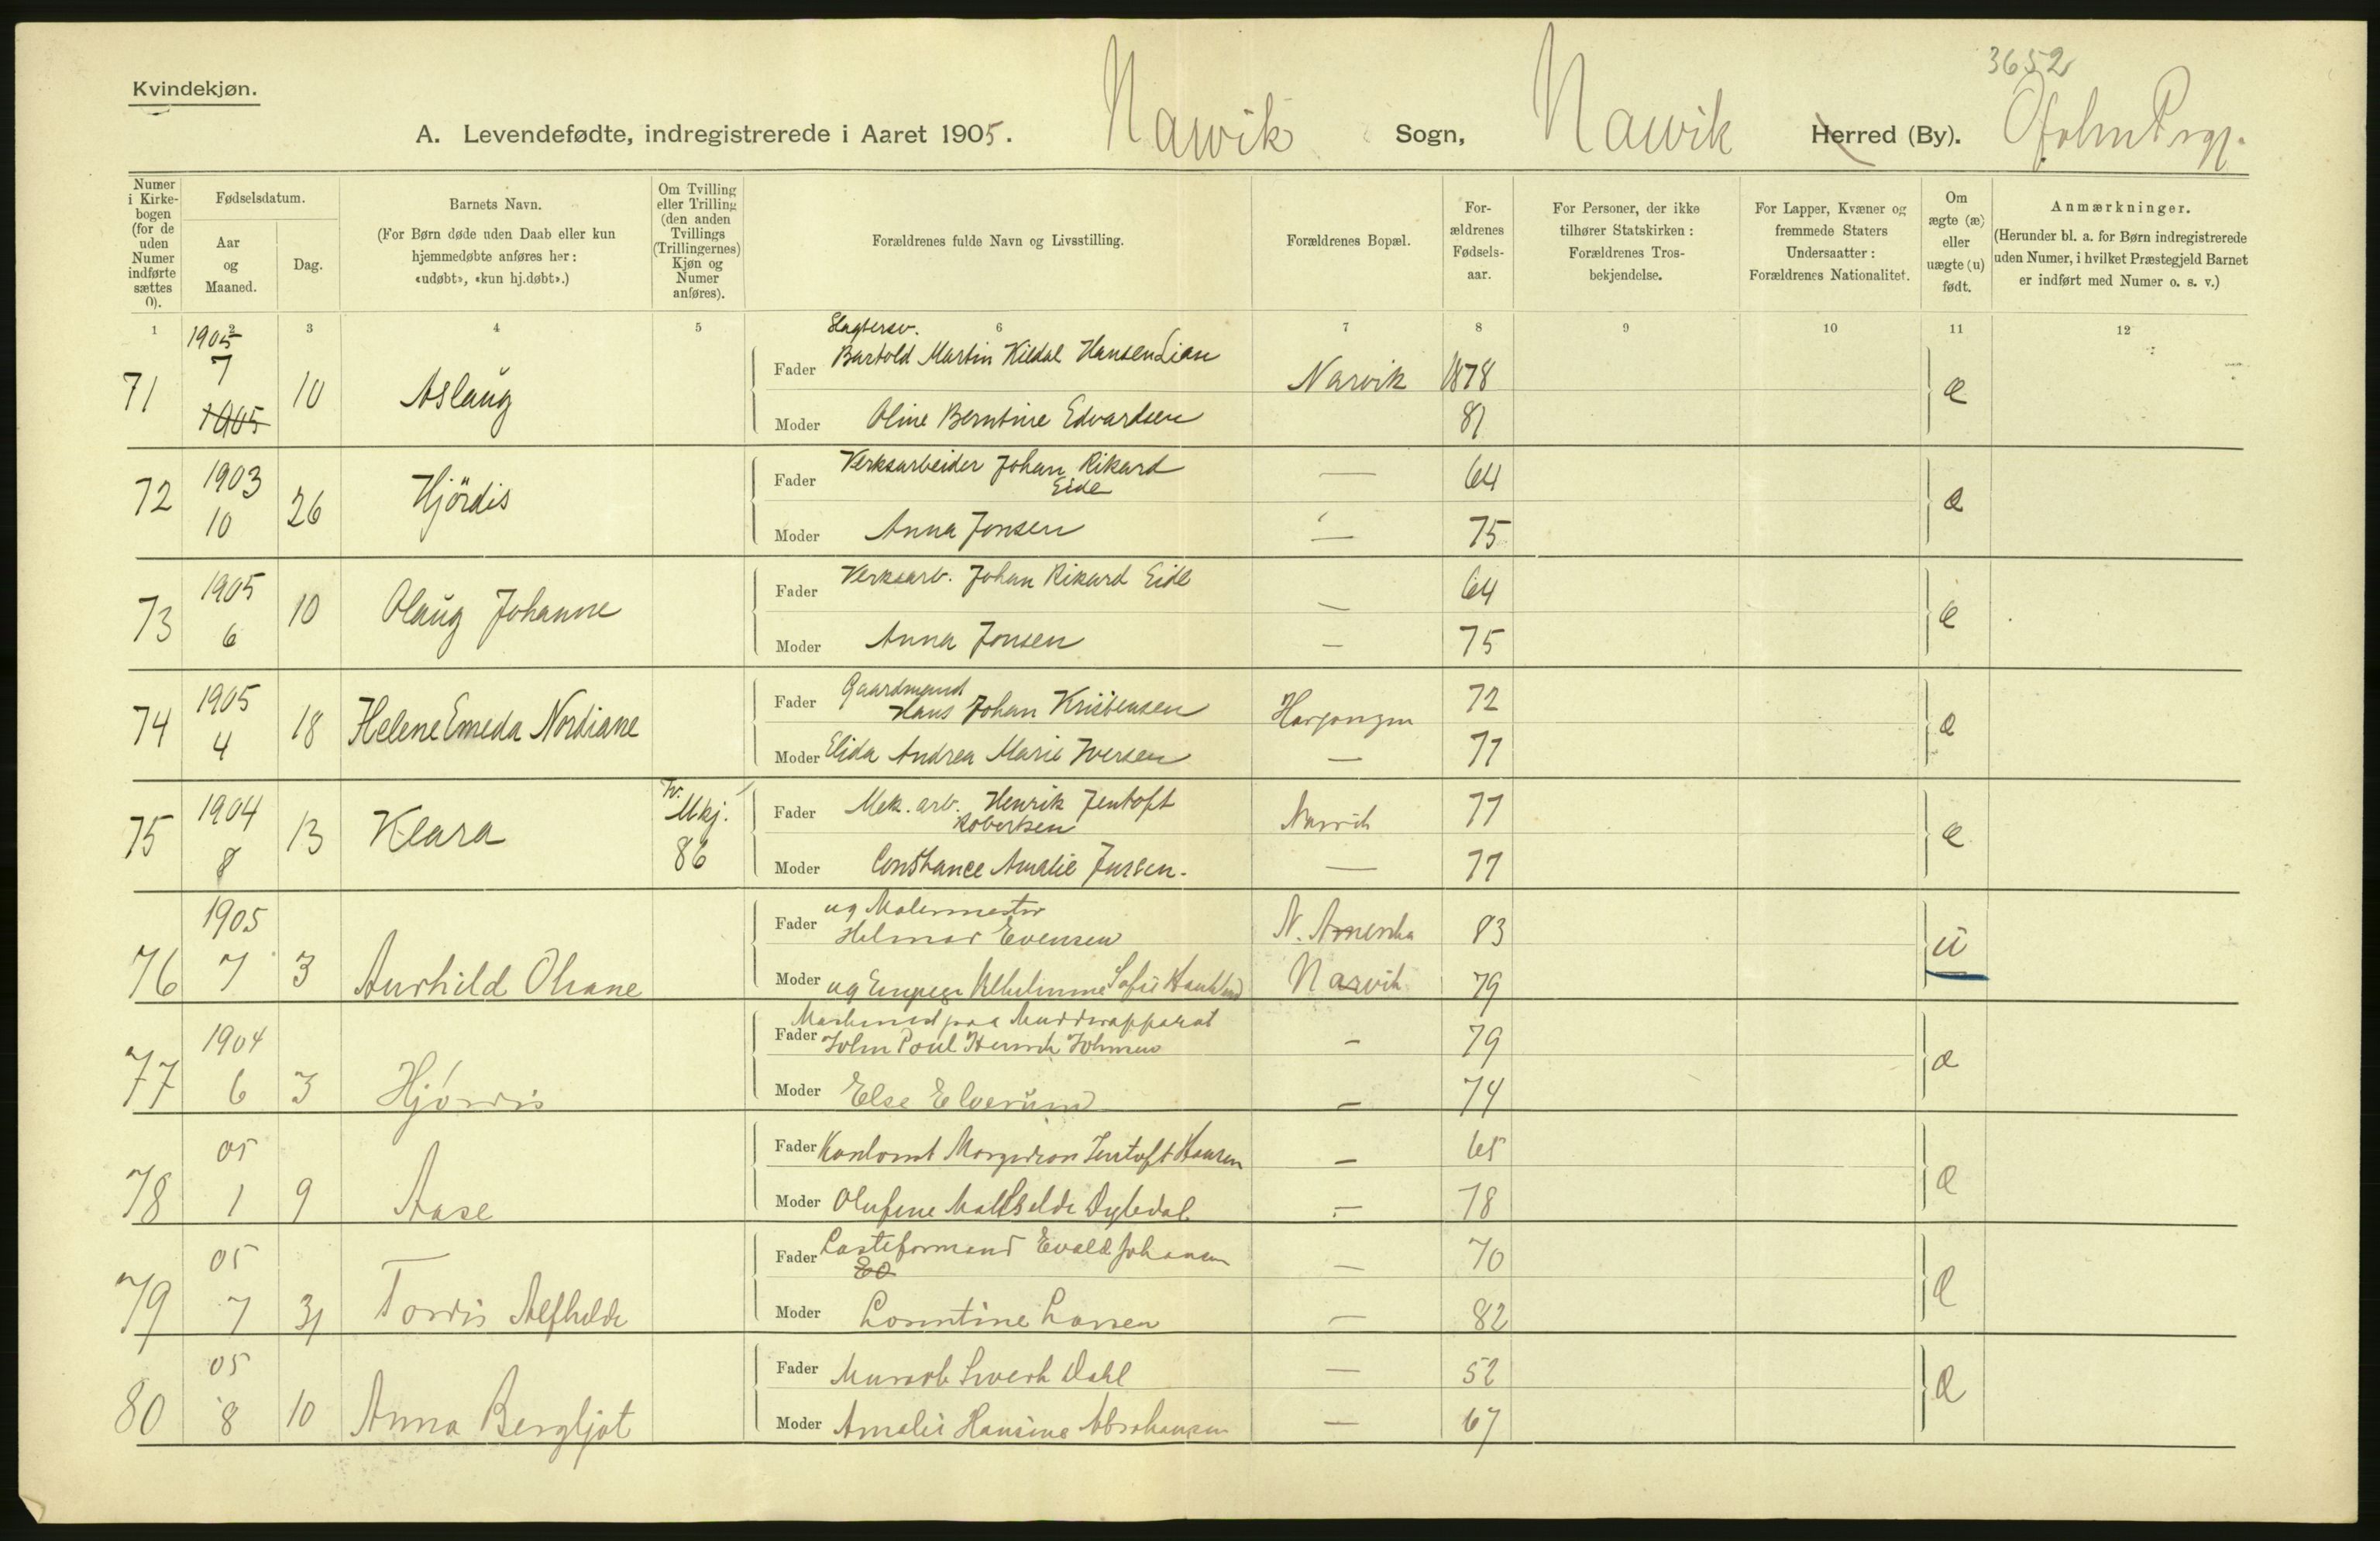 3652
Kvindekjøn.
A. Levendefødte, indregistrerede i Aaret 1905. Narvik Sogn, Narvik Herred (By). Ofoten Prgj.
Numer i Kirkebogen (for de uden Numer indførte sættes 0).
Fødselsdatum.
Aar og Maaned.
Dag.
Barnets Navn.
(For Børn døde uden Daab eller kun hjemmedøbte anføres her: «udøbt», «kun hj.døbt».)
Om Tvilling eller Trilling (den anden Tvillings (Trillingernes) Kjøn og Numer anføres).
Forældrenes fulde Navn og Livsstilling.
Forældrenes Bopæl.
For-
ældrenes
Fødsels-
aar.
For Personer, der ikke
tilhører Statskirken:
Forældrenes Tros-
bekjendelse.
For Lapper, Kvæner og
fremmede Staters
Undersaatter:
Forældrenes Nationalitet.
Om
ægte (æ)
eller
uægte (u)
født.
Anmærkninger.
(Herunder bl. a. for Børn indregistrerede
uden Numer, i hvilket Præstegjeld Barnet
er indført med Numer o. s. v.)
1 2 3 4 5 6 7 8 9 10 11 12
71 1905 7 1905 10 Aslaug
Slagtersv.
Fader Bartold Martin Kildal Hansen Lian Narvik 1878 æ
Moder Oline Berntine Edvardsen 81
72 1903 10 26 Hjördis
Fader Verksarbeider Johan Rikard Eide — 64 æ
Moder Anna Jonsen — 75
73 1905 6 10 Olaug Johanne
Fader Verksarb. Johan Rikard Eide — 64 æ
Moder Anna Jonsen — 75
74 1905 4 18 Helene Emeda Nordiane
Fader Gaardmand Hans Johan Kristensen 72 æ
Moder Elida Andrea Marie Iversen — 77
75 1904 8 13 Klara Tv. Mkj. 86
Fader Mek. arb. Henrik Jentoft Robertsen Narvik 77 æ
Moder Constance Amalie Jensen. — 77
76 1905 7 3 Aurhild Oliane
Fader ug Malermester
Helmar Evensen N. Amerika 83 u
Moder ug Sofie Narvik 79
77 1904 6 3 Hjórdis
Fader Maskinist paa Mudderapparat
John Poul Henrik Johnsen — 79 æ
Moder Else Elverum — 74
78 05 1 9 Aase
Fader Jentoft Hansen — 65 æ
Moder Olufine — 78
79 05 7 31 Tordis Alfhilde
Fader Lasteformand Evald Johansen — 70 æ
Moder Lorentine Larsen — 82
80 05 8 10 Anna Bergljot
Fader Murarb Dahl — 52 æ
Moder Amalie Hansine Abrahamsen — 67